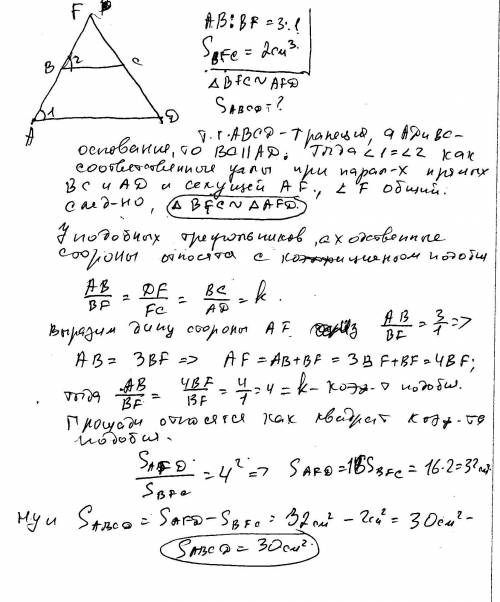 F
B 2 C
A 1 D
AB:BF=3:1
S_BFC = 2см³
△BFC∾AFD
S_ABCD-?
т.к. ABCD-трапеция, а AD и BC-
основание, то BC||AD. Тогда ∠1=∠2 как
соответственные углы при парал-х прямых
BC и AD и секущей AF., ∠F общий.
след-но, △BFC∾△AFD.
У подобных треугольников, сходственные
стороны относятся с коэффициентом подобия
AB/BF = DF/FC = BC/AD = k.
Выразим длину стороны AF. AB/BF = 3/1 =>
AB = 3BF => AF = AB+BF = 3BF+BF = 4BF;
тогда AB/BF = 4BF/BF = 4/1 = 4 = k - коэф-т подобия.
Площади относятся как квадрат коэф-та
подобия.
S_AFD/S_BFC = 4² => S_AFD = 16S_BFC = 16·2 = 32
Ну и S_ABCD = S_AFD - S_BFC = 32см² - 2см² = 30см²
S_ABCD = 30см².